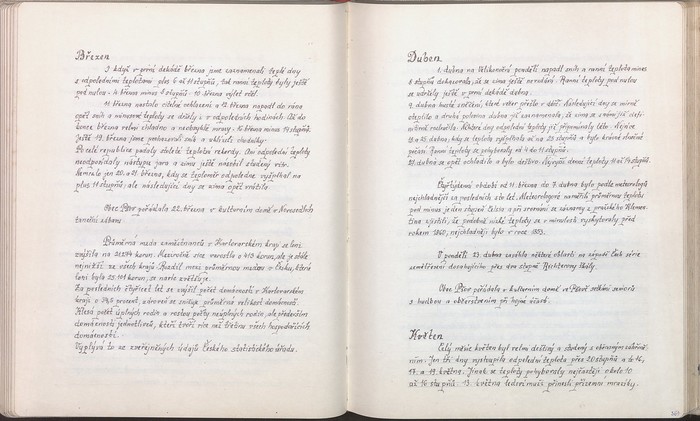 Březen
I když v první dekádě března jsme zaznamenali teplé dny
s odpoledními teplotami plus 6 až 11 stupňů, tak ranní teploty byly ještě
pod nulou - 4. března minus 8 stupňů. 10. března vylet včel.
11. března nastalo citelné ochlazení a 12. března napadl do rána
opět sníh a mínusové teploty se držely i v odpoledních hodinách. Až do
konce března velmi chladno a neobvyklé mrazy. 16. března minus 14 stupňů.
Ještě 19. března jsme prohazovali sníh a uklízeli chodníky.
Po celé republice padaly stoleté teplotní rekordy. Ani odpolední teploty
neodpovídaly nástupu jara a zimu ještě násobil studený vítr.
Nemýlilo jen 20. a 21. března, kdy se teploměr odpoledne vyšplhal na
plus 11 stupňů, ale následující dny se zima opět vrátila.
Obec Pšov pořádala 22. března v kulturním domě v Novosedlích
taneční zábavu.
Průměrná mzda zaměstnanců v Karlovarském kraji se loni
zvýšila na 21284 korun. Meziročně sice vzrostla o 413 korun, ale je stále
nejnižší ze všech krajů. Rozdíl mezi průměrnou mzdou v Česku, která
loni byla 25.101 korun, se navíc zvětšuje.
Za posledních čtyřicet let se zvýšil počet domácností v Karlovarském
kraji o 24,5 procent, zároveň se snižuje průměrná velikost domácností.
Klesá počet úplných rodin a rostou počty neúplných rodin, ale především
domácností jednotlivců, kteří tvoří více než třetinu všech hospodařících
domácností.
Vyplývá to ze zveřejněných údajů Českého statistického úřadu.
Duben
1. dubna na Velikonoční pondělí napadl sníh a ranní teplota minus
8 stupňů dokazovala, že se zima ještě nevzdává. Ranní teploty pod nulou
se udržely ještě v první dekádě dubna.
9. dubna husté sněžení, které večer přešlo v déšť. Následující dny se mírně
oteplilo a druhá polovina dubna již zaznamenala, že zima se s námi již defi-
nitivně rozloučila. Některé dny odpolední teploty již připomínaly léto. Nejvíce
18. a 25. dubna, kdy se teploty vyšplhaly až na 23 stupňů a bylo krásné slunečné
počasí. Ranní teploty se pohybovaly od 4 do 11 stupňů.
27. dubna se opět ochladilo a bylo deštivo. Nejvyšší denní teploty 11 až 14 stupňů.
Čtyřtýdenní období od 11. března do 7. dubna bylo podle meteorologů
nejchladnější za posledních sto let. Meteorologové naměřili průměrnou teplotu
pod minus jeden stupeň Celsia a při srovnání se záznamy z pražského Klemen-
tina zjistili, že podobně nízké teploty se v minulosti vyskytovaly před
rokem 1860, nejchladněji bylo v roce 1853.
V pondělí 23. dubna zasáhla některé oblasti na západě Čech série
zemětřesení dosahujícím přes dva stupně Richterovy škály.
Obec Pšov pořádala v kulturním domě ve Pšově setkání seniorů
s hudbou a občerstvením při hojné účasti.
Květen
Celý měsíc květen byl velmi deštivý a studený s občasným zatažním-
Jen tři dny vystoupila odpolední teplota přes 20 stupňů a to 16.,
17. a 19. května. Jinak se teploty pohybovaly nejčastěji okolo 10
až 16 stupňů. 13. května ledoví muži přinesli přízemní mrazíky.